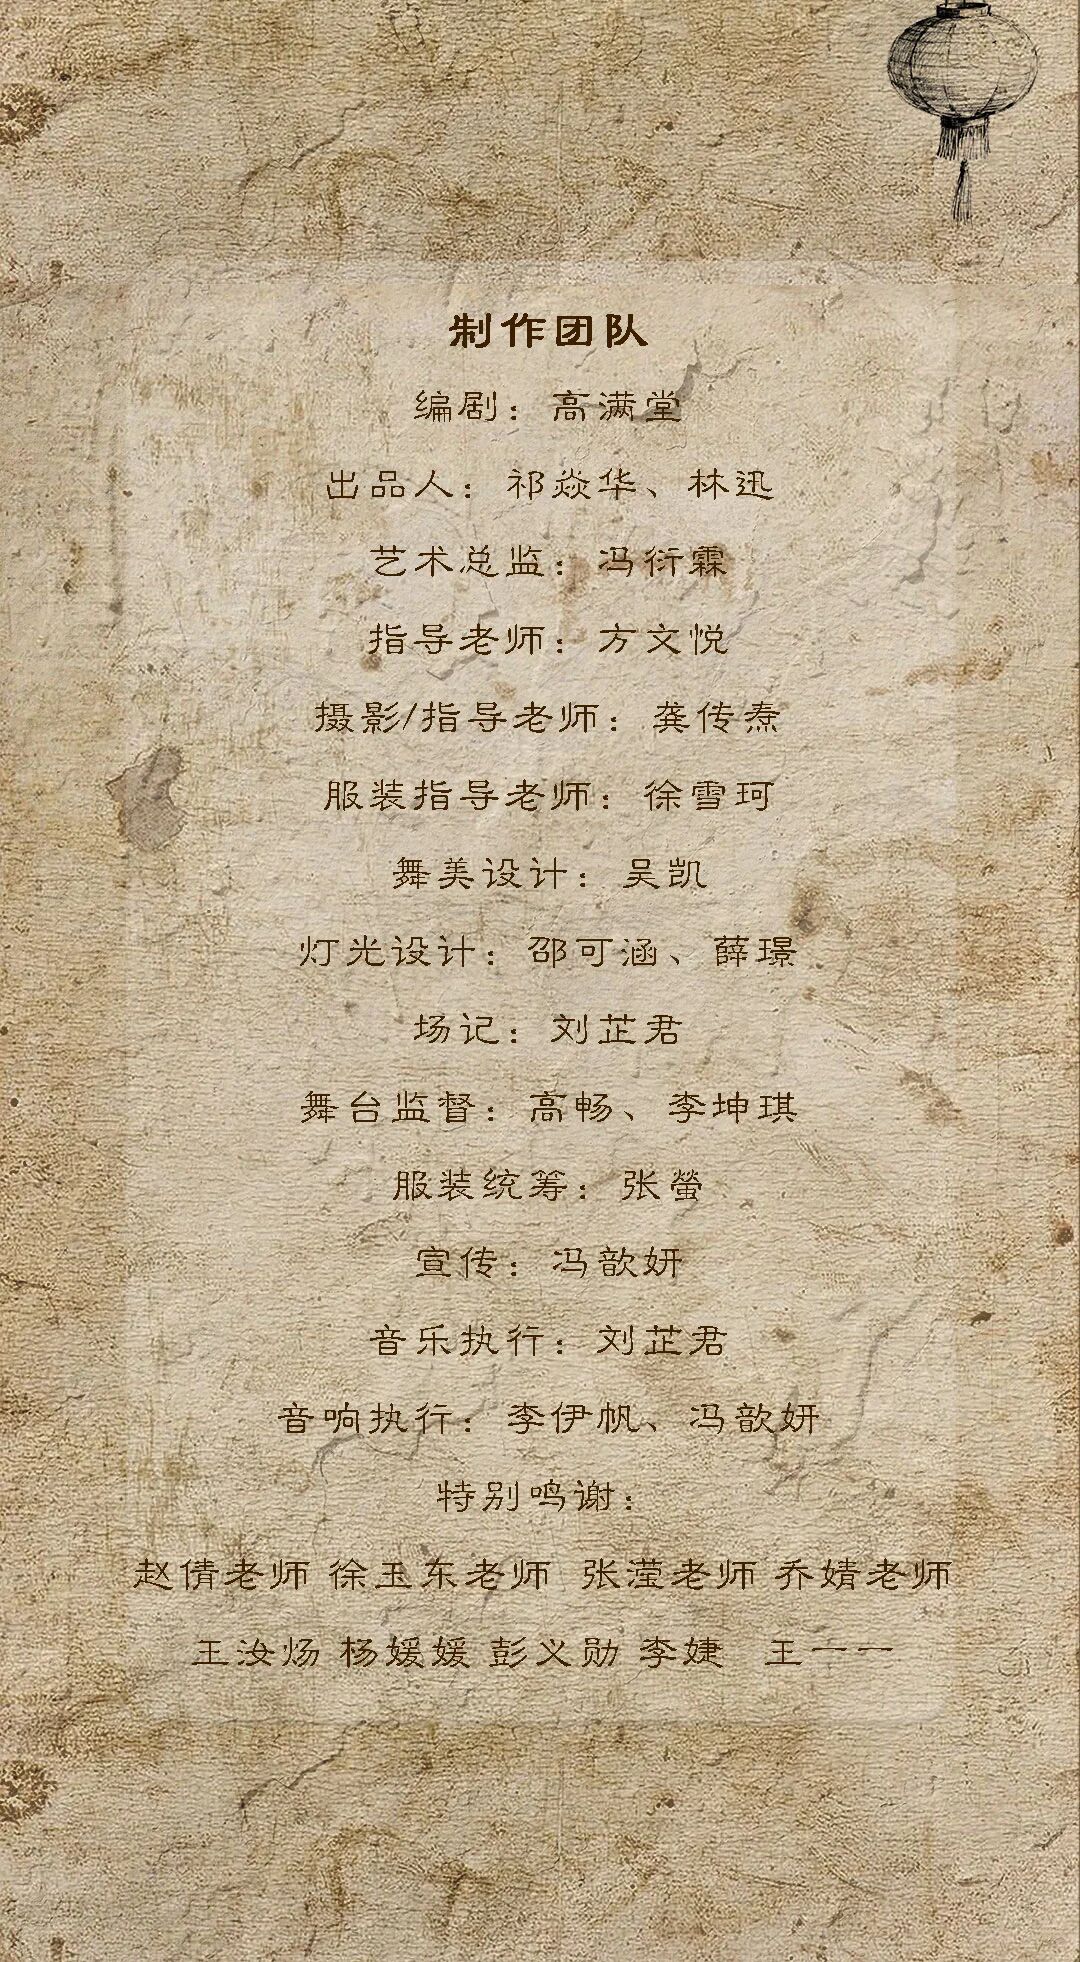 制作团队
编剧：高满堂
出品人：祁焱华、林迅
艺术总监：冯衍霖
指导老师：方文悦
摄影/指导老师：龚传焘
服装指导老师：徐雪珂
舞美设计：吴凯
灯光设计：邵可涵、薛璟
场记：刘芷君
舞台监督：高畅、李坤琪
服装统筹：张螢
宣传：冯歆妍
音乐执行：刘芷君
音响执行：李伊帆、冯歆妍
特别鸣谢：
赵倩老师 徐玉东老师 张滢老师 乔婧老师
王汝炀 杨媛媛 彭义勋 李婕 王一一